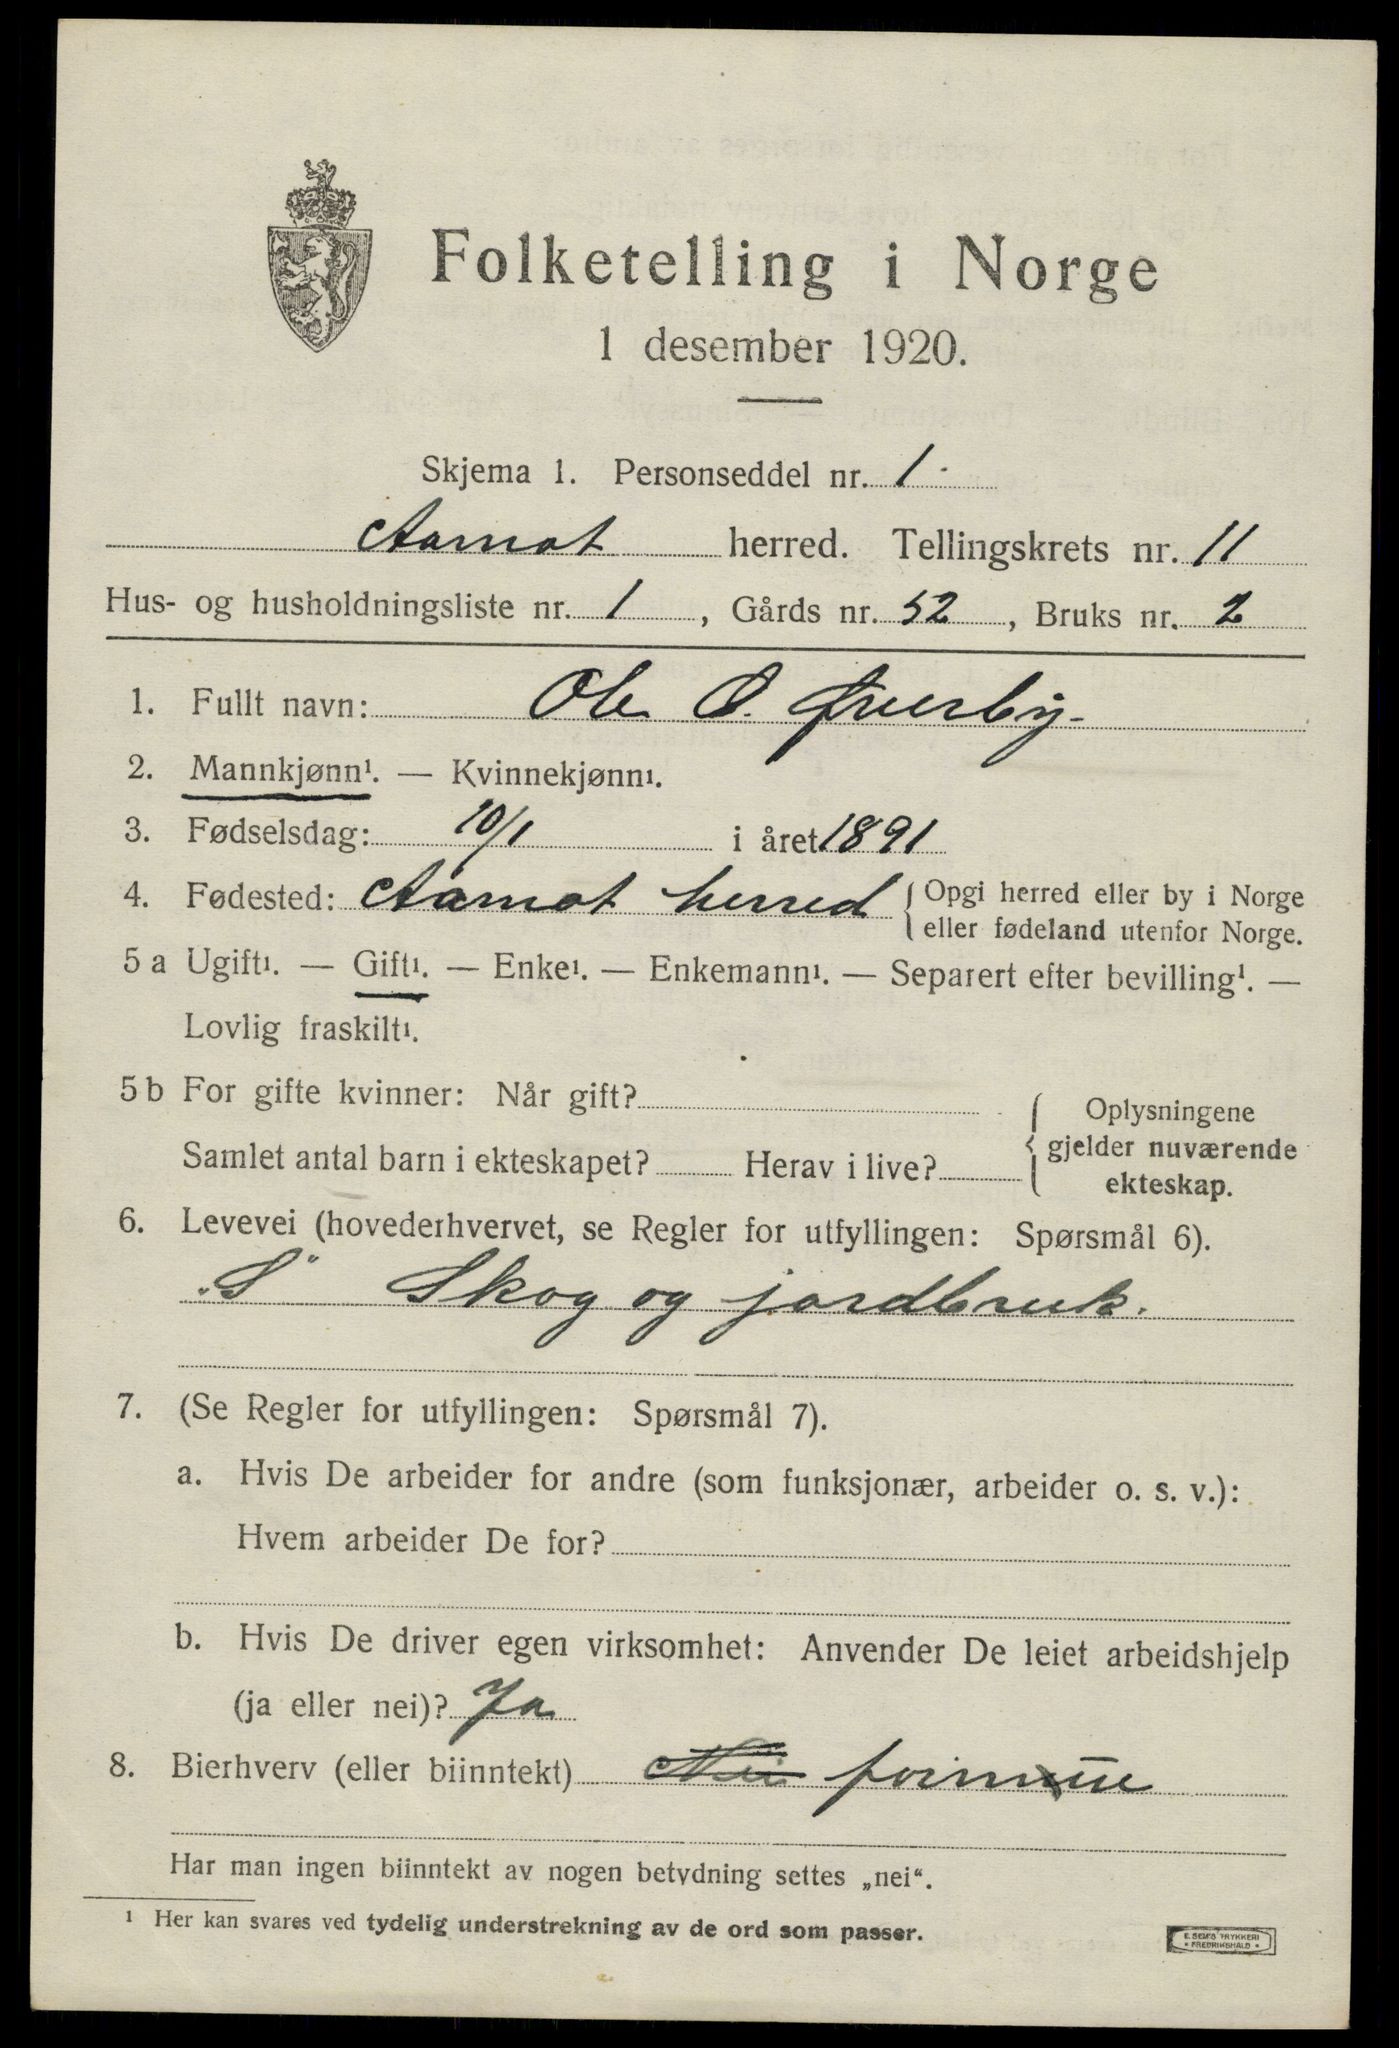 Folketelling i Norge
1 desember 1920.
Skjema 1. Personseddel nr. 1
Aamot herred. Tellingskrets nr. 11
Hus- og husholdningsliste nr. 1, Gårds nr. 52, Bruks nr. 2
1. Fullt navn: Ole O. Øverby.
2. Mannkjønn¹. — Kvinnekjønn¹.
3. Fødselsdag: 10/1 i året 1891
4. Fødested: Aamot herred { Opgi herred eller by i Norge
eller fødeland utenfor Norge.
5 a Ugift¹. — Gift¹. — Enke¹. — Enkemann¹. — Separert efter bevilling¹. —
Lovlig fraskilt¹.
5 b For gifte kvinner: Når gift?
Samlet antal barn i ekteskapet? Herav i live?
{ Oplysningene
gjelder nuværende
ekteskap.
6. Levevei (hovederhvervet, se Regler for utfyllingen: Spørsmål 6).
"S" Skog og jordbruk.
7. (Se Regler for utfyllingen: Spørsmål 7).
a. Hvis De arbeider for andre (som funksjonær, arbeider o. s. v.):
Hvem arbeider De for?
b. Hvis De driver egen virksomhet: Anvender De leiet arbeidshjelp
(ja eller nei)? Ja
8. Bierhverv (eller biinntekt) Nei
Har man ingen biinntekt av nogen betydning settes „nei“.
¹ Her kan svares ved tydelig understrekning av de ord som passer.
E. SEM'S TRYKKERI
• FREDRIKSHALD •